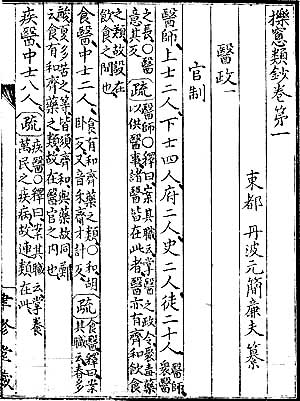 櫟窻類鈔卷第一
東都 丹波元簡廉夫 纂
醫政一
官制
醫師上士二人下士四人府二人史二人徒二十人 醫師衆醫
之長〇醫意其反 疏 醫師〇釋曰案其職云掌醫之政令聚毒藥以供醫事諸醫皆在此者醫亦有齊和飲食
之類故設在飲食之間也
食醫中士二人 食有和齊藥之類〇和胡卧反又音禾齊才計反 疏 食醫〇釋曰案其職云春多
酸夏多苦之等皆須齊和與藥故同鄭云食有和齊藥之類故在醫官之內也
疾醫中士八人 疏 疾醫〇釋曰案其職云掌養萬民之疾病故連類在此
聿修堂藏